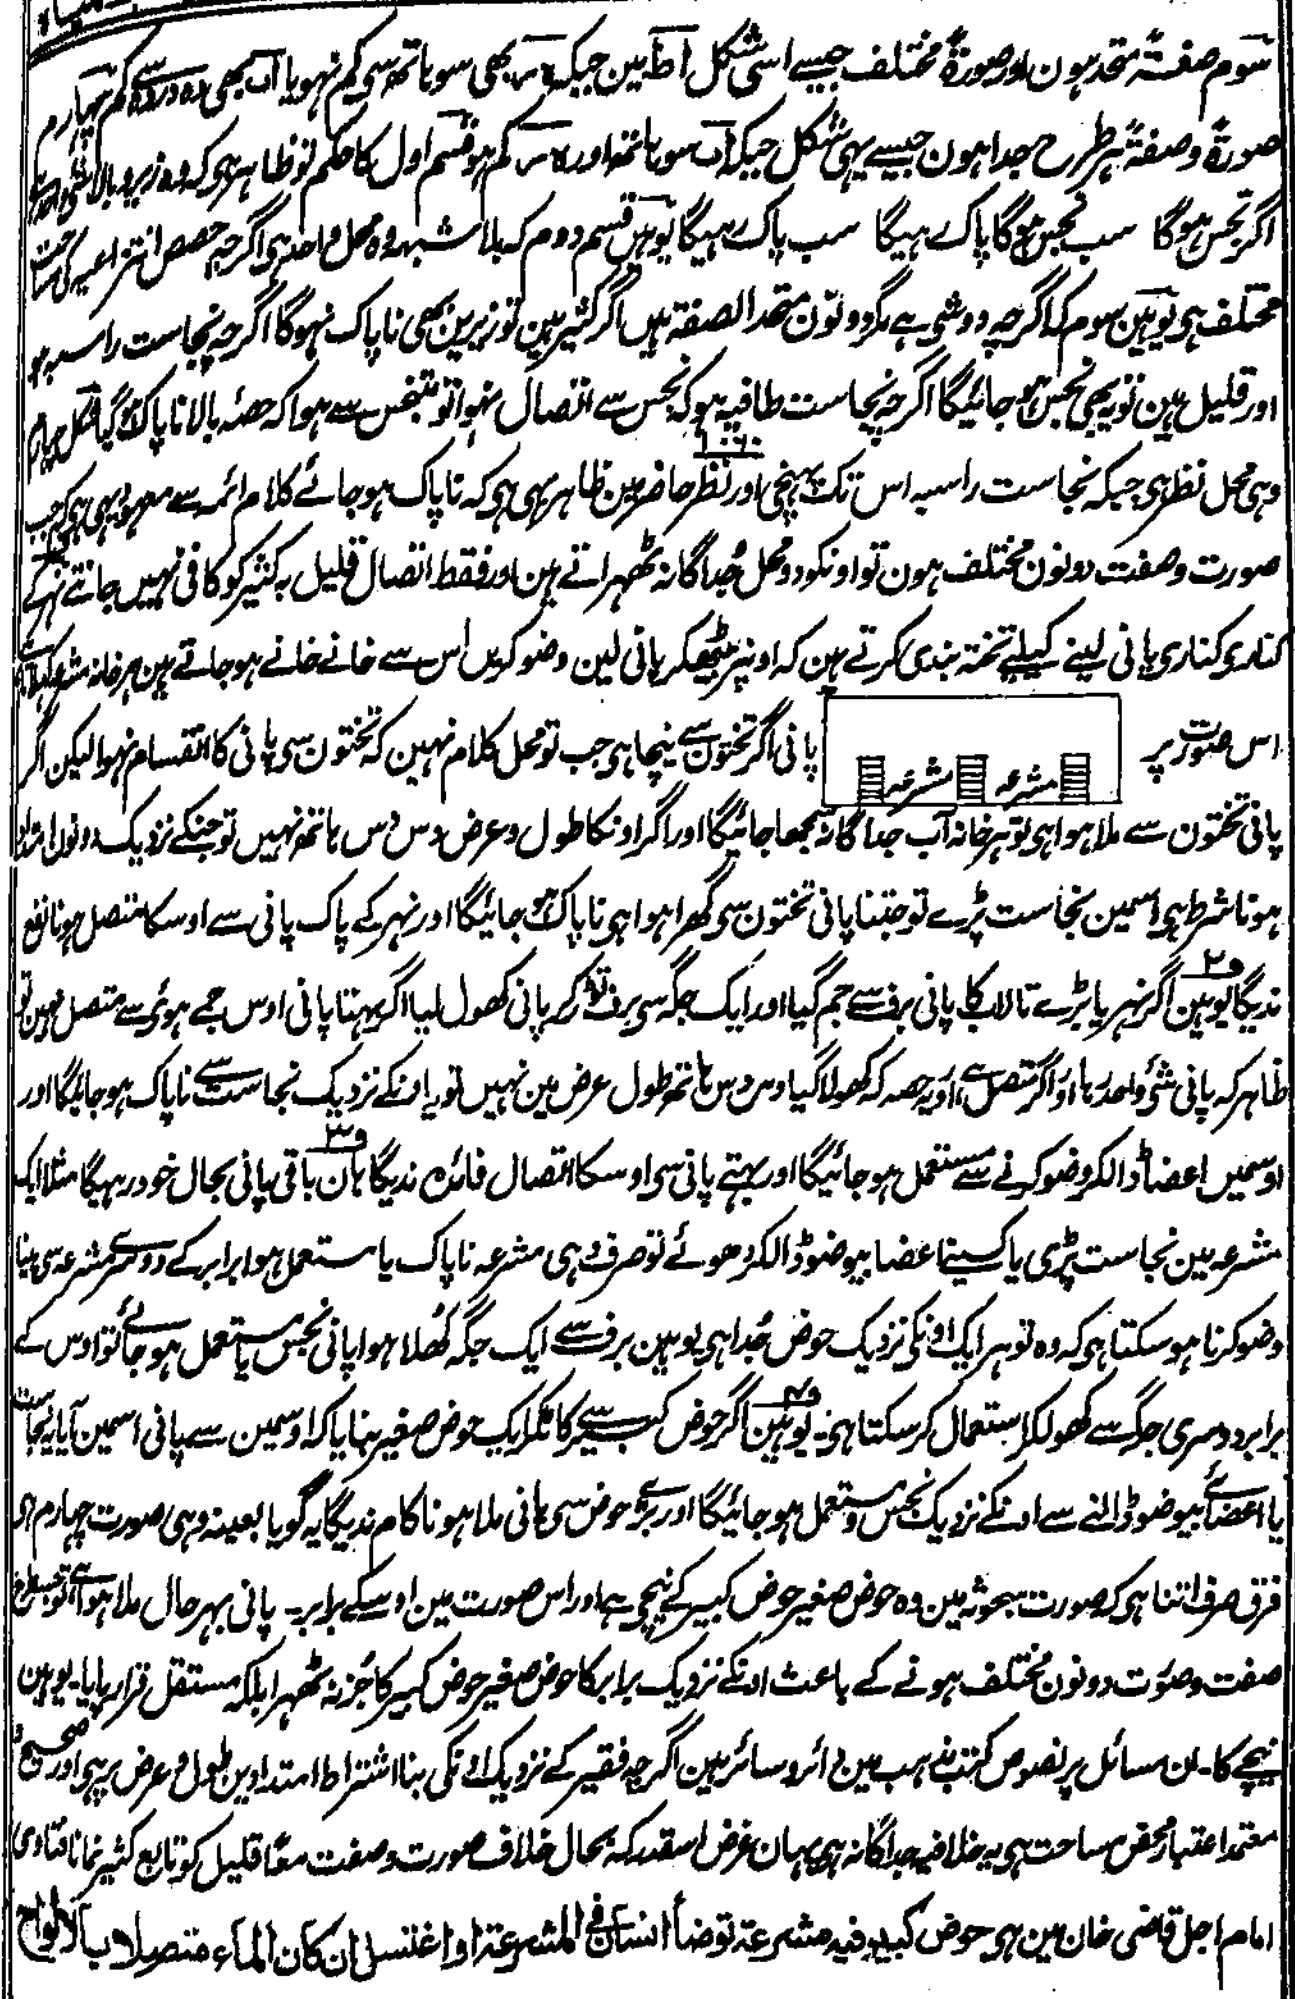 سوم صفۃً متحد ہون اور صورۃً مختلف جیسے اسی شکل اط مین جبکہ ہ ر بھی سو ہاتھ سی کم نہو یا اب بھی دہ در دہ سے کم چہارم
صورۃً وصفۃً ہر طرح جدا ہون جیسے یہی شکل جبکہ اب سو ہاتھ اور ہ ر کم ہو قسم اول کا حکم تو ظاہر ہی کہ وہ زیر و بالا شیٔ واحد ہے
اگر نجس ہوگا سب نجس ہوگا پاک رہیگا سب پاک رہیگا یوہیں قسم دوم کہ بلا شبہہ وہ محل واحد ہی اگرچہ حصص انتزاعیہ کی مساحت
مختلف ہی یوہین سوم کہ اگرچہ دو شی ہے مگر دونون متحد الصفۃ ہیں اگر کثیر ہین تو زیرین بھی ناپاک نہوگا اگرچہ نجاست راسبہ ہو
اور قلیل ہین تو یہ بھی نجس ہو جائیگا اگرچہ نجاست طافیہ ہو کہ نجس سے اتصال نہوا تو متنجس سے ہوا کہ حصہ بالا ناپاک ہوگیا شکل چہارم
وہی محل نظر ہی جبکہ نجاست راسبہ اس تک پہنچی اور نظر حاضر مین ظاہر یہی ہی کہ ناپاک ہو جائے کلام ائمہ سے معہود یہی ہی کہ جب
صورت وصفت دونون مختلف ہون تو اونکو دو محل جُداگانہ ٹھہراتے ہین اور فقط اتصال قلیل بہ کثیر کو کافی نہیں جانتے نہر کے
کناری کناری پانی لینے کیلیے تختہ بندی کرتے ہین کہ اونپر بیٹھکر پانی لین وضو کریں اس سے خانے خانے ہو جاتے ہین ہر خانہ مشرعہ کہلاتا ہے
اس صورت پر مشرعہ مشرعہ پانی اگر تختون سے نیچا ہی جب تو محل کلام نہین کہ تختون سی پانی کا انقسام نہوا لیکن اگر
پانی تختون سے ملا ہوا ہی تو ہر خانہ آب جداگانہ سمجھا جائیگا اور اگر اونکا طول وعرض دس دس ہاتھ نہیں تو جنکے نزدیک دونون امتداد
ہونا شرط ہی اسمین نجاست پڑے تو جتنا پانی تختون سی گھرا ہوا ہی ناپاک ہو جائیگا اور نہر کے پاک پانی سے اوسکا متصل ہونا نفع
ندیگا یوہین اگر نہر یا بڑے تالاب کا پانی برف سے جم گیا اور ایک جگہ سی برف توڑ کر پانی کھول لیا اگر بہتا پانی اوس جمے ہوئی سے متصل نہین تو
ظاہر کہ پانی شئ واحد رہا اور اگر متصل ہے اور یہ حصہ کہ کھولا گیا دس دس ہاتھ طول عرض مین نہیں تو یہ اونکے نزدیک نجاست سے ناپاک ہو جائیگا اور
اوسمیں اعضا ڈالکر وضو کرنے سے مستعمل ہو جائیگا اور بہتے پانی سی اوسکا اتصال فائدہ ندیگا ہان باقی پانی بحال خود رہیگا مثلا ایک
مشرعہ مین نجاست پڑی یا کسینے اعضا بیوضو ڈالکر دھوئے تو صرف وہی مشرعہ ناپاک یا مستعمل ہوا برابر کے دوسرے مشرعہ سی پینا
وضو کرنا ہو سکتا ہی کہ وہ تو ہر ایک اونکی نزدیک حوض جُدا ہی یوہین برف سے ایک جگہ کُھلا ہوا پانی نجس یا مستعمل ہو جائے تو اوس کے
برابر دوسری جگہ سے کھولکر استعمال کر سکتا ہے۔ یوہین اگر حوض کبیر سے کاٹکر ایک حوض صغیر بنایا کہ اوسمین سے پانی اسمین آیا یہ نجاست
یا اعضائے بیوضو ڈالنے سے اونکے نزدیک نجس و مستعمل ہو جائیگا اور بڑے حوض سی پانی ملا ہونا کام ندیگا یہ گویا بعینہ وہی صورت چہارم ہی
فرق صرف اتنا ہی کہ صورت مبحوثہ مین وہ حوض صغیر حوض کبیر کے نیچی ہے اور اس صورت مین اوسکے برابر۔ پانی بہر حال ملا ہوا ہے تو جسطرح
صفت وصورت دونون مختلف ہونے کے باعث اونکے نزدیک برابر کا حوض صغیر حوض کبیر کا جُز نہ ٹھہرا بلکہ مستقل قرار پایا۔ یوہین
نیچے کا۔ ان مسائل پر نصوص کتب مذہب مین دائر و سائر ہین اگرچہ فقیر کے نزدیک اونکی بنا اشتراط امتدادین طول وعرض پر ہی اور صحیح
معتمد اعتبار محض مساحت ہی یہ خلافیہ جداگانہ ہی یہان غرض اسقدر کہ بحال خلاف صورت وصفت معًا قلیل کو تابع کثیر نمانا فتاوی
امام اجل قاضی خان مین ہی حوض کبیر فیہ مشرعۃ توضأ انسان فی المشرعۃ او اغتسل ان کان الماء متصلا بالالواح